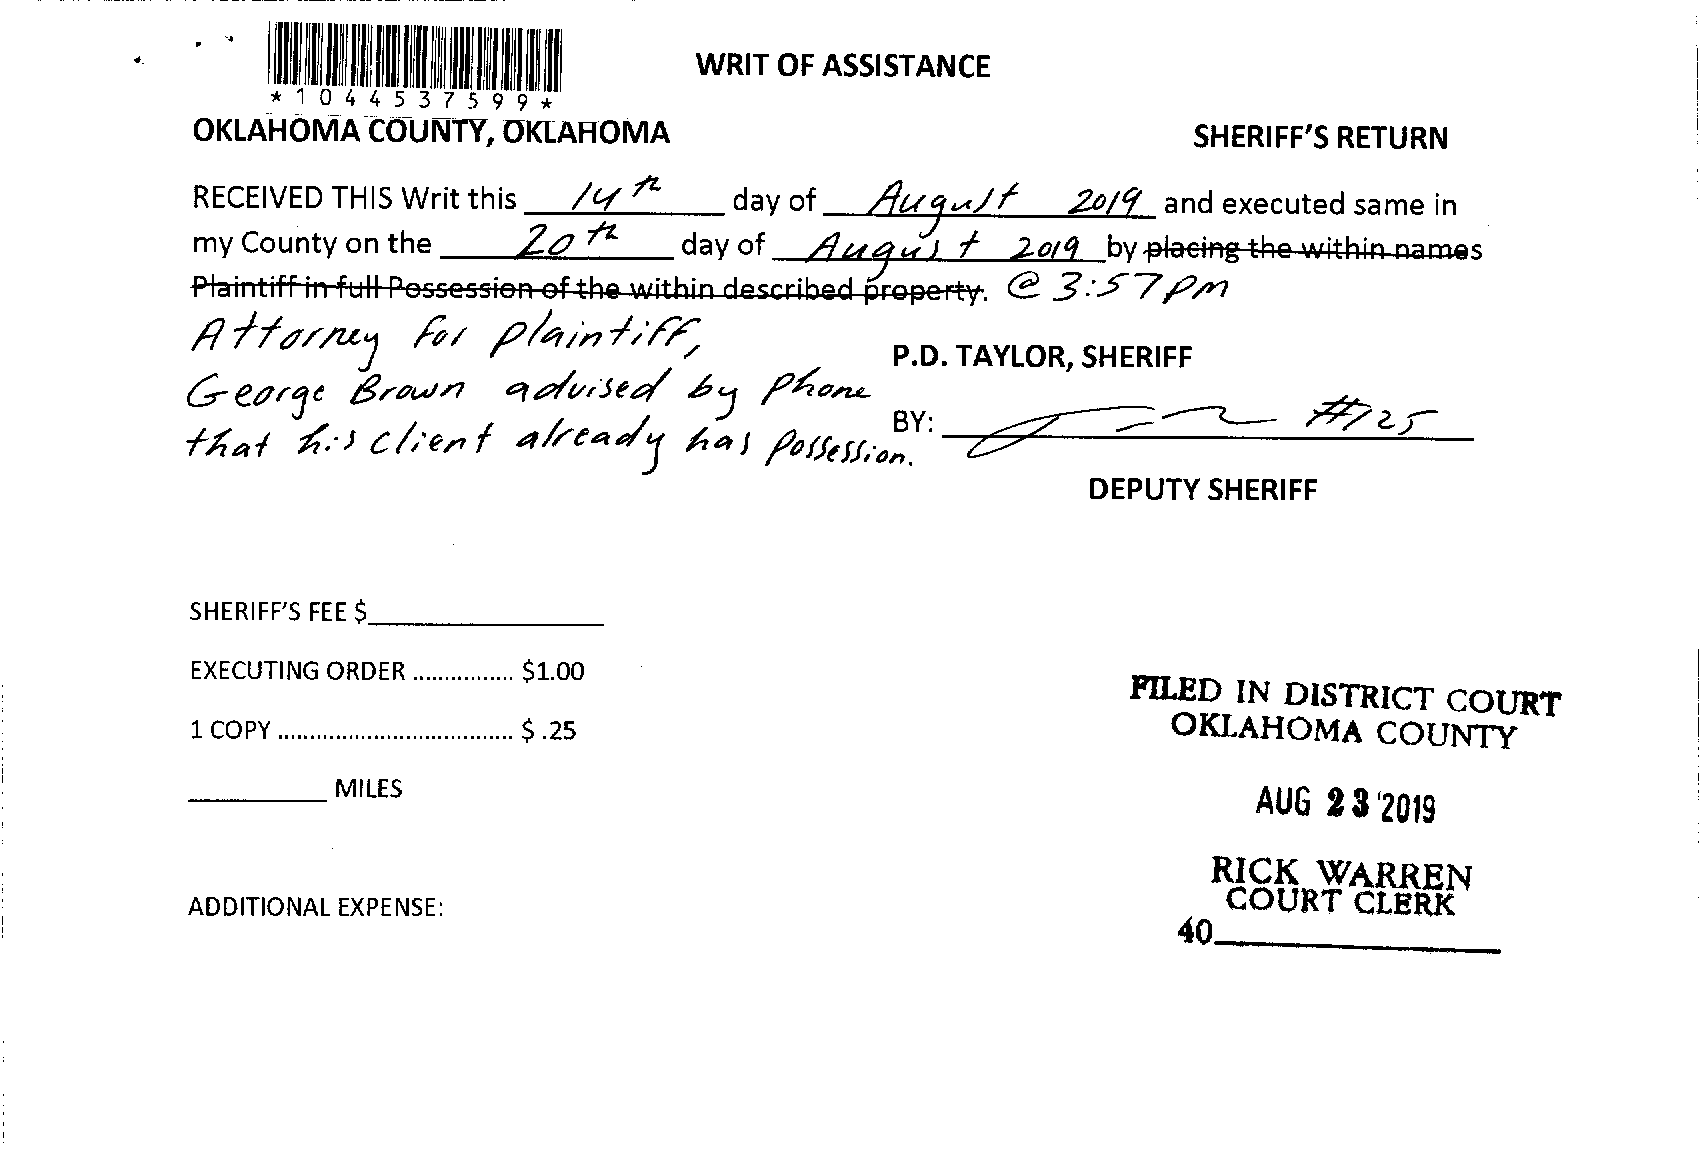 WRIT OF ASSISTANCE
*1044537599*
OKLAHOMA COUNTY, OKLAHOMA SHERIFF'S RETURN
RECEIVED THIS Writ this 14th day of August 2019 and executed same in
my County on the 20th day of August 2019 by placing the within names
Plaintiff in full Possession of the within described property. @ 3:57pm
Attorney for plaintiff,
George Brown advised by phone
that his client already has possession.
P.D. TAYLOR, SHERIFF
BY: #125
DEPUTY SHERIFF
SHERIFF'S FEE $
EXECUTING ORDER ................ $1.00
1 COPY ..................................... $ .25
MILES
ADDITIONAL EXPENSE:
FILED IN DISTRICT COURT
OKLAHOMA COUNTY
AUG 23 '2019
RICK WARREN
COURT CLERK
40